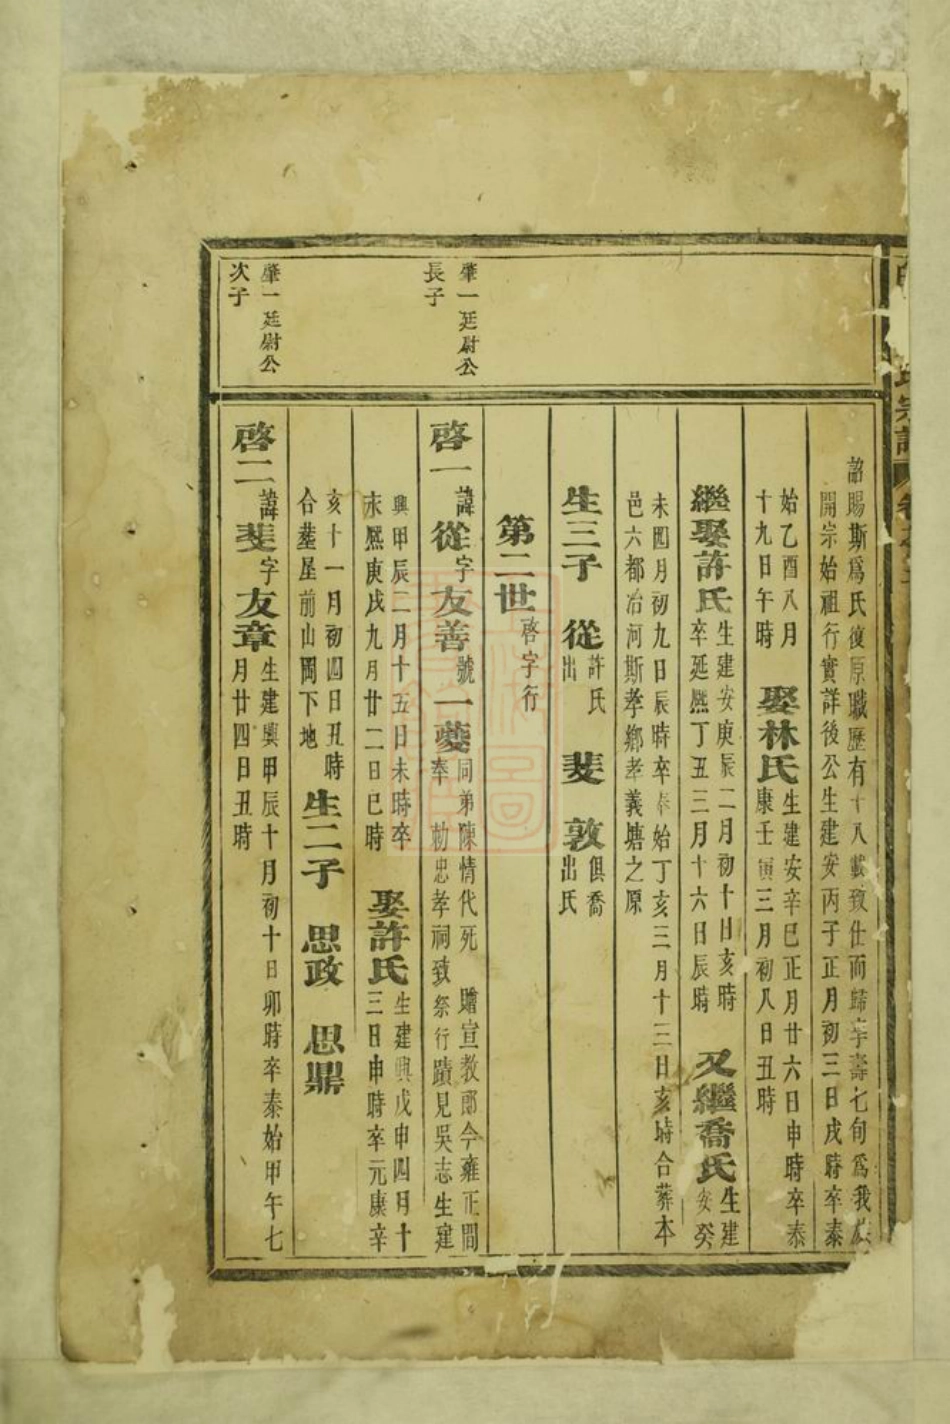 氏宗譜
詔賜斯爲氏復原職歷有十八載致仕而歸享壽七旬爲我族
開宗始祖行實詳後公生建安丙子正月初三日戌時卒泰
始乙酉八月
十九日午時
娶林氏
生建安辛巳正月廿六日申時卒泰
康壬寅三月初八日丑時
繼娶許氏
生建安庚辰二月初十日亥時
卒延熈丁丑三月十六日辰時
又繼喬氏
生建
安癸
未四月初九日辰時卒泰始丁亥三月十三日亥時合葬本
邑六都冶河斯孝鄉孝義塘之原
生三子 從
許氏
出
斐 敦
俱喬
氏出
第二世
啓字行
肇一廷尉公
長子
啓一
諱從字友善號一夔
同弟陳情代死 贈宣教郎今雍正間
奉 勅忠孝祠致祭行蹟見吳志生建
興甲辰二月十五日未時卒
永熈庚戌九月廿二日巳時
娶許氏
生建興戊申四月十
三日申時卒元康辛
亥十一月初四日丑時
合塟屋前山岡下地
生二子 思政 思鼎
肇一廷尉公
次子
啓二
諱斐字友章
生建興甲辰十月初十日卯時卒泰始甲午七
月廿四日丑時